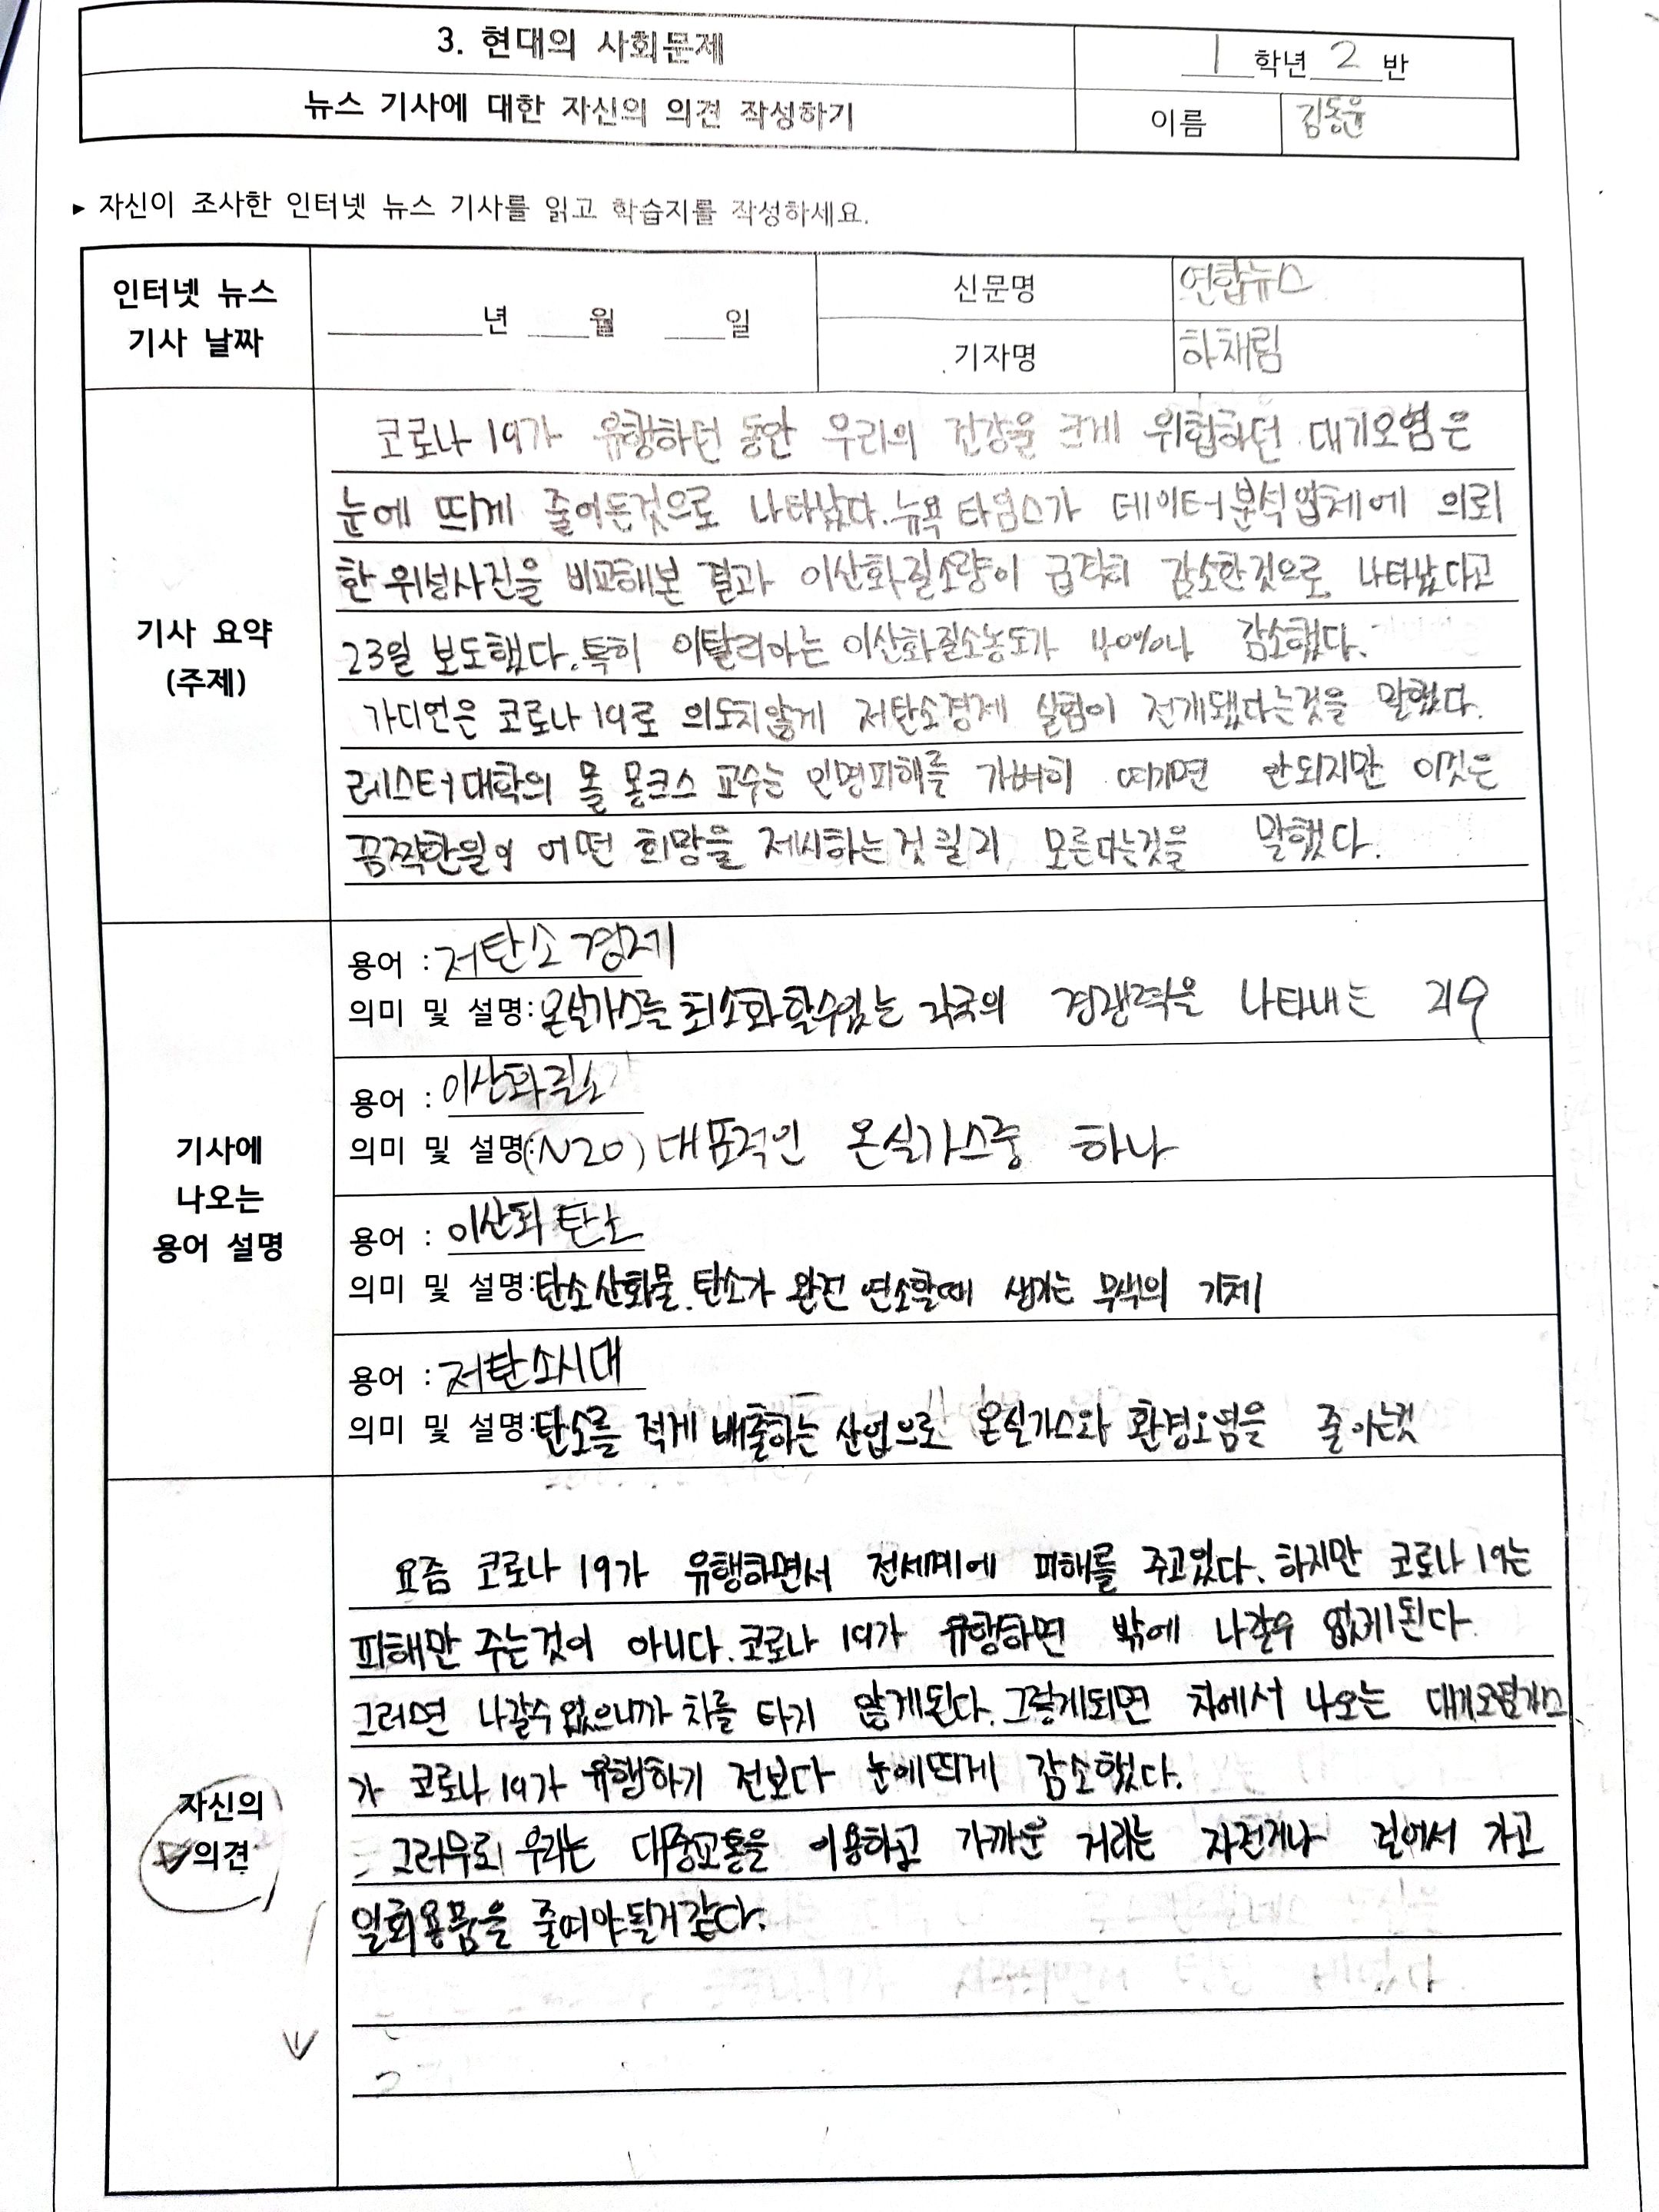 3. 현대의 사회문제
1 학년 2 반
뉴스 기사에 대한 자신의 의견 작성하기
이름
김동윤
▸ 자신이 조사한 인터넷 뉴스 기사를 읽고 학습지를 작성하세요.
인터넷 뉴스
기사 날짜
년 월 일
신문명
연합뉴스
기자명
하채림
기사 요약
(주제)
코로나 19가 유행하던 동안 우리의 건강을 크게 위협하던 대기오염은
눈에 띄게 줄어든것으로 나타났다. 뉴욕 타임스가 데이터분석업체에 의뢰
한 위성사진을 비교해본 결과 이산화질소량이 급격히 감소한것으로 나타났다고
23일 보도했다. 특히 이탈리아는 이산화질소농도가 40%나 감소했다.
가디언은 코로나 19로 의도치않게 저탄소경제 실험이 전개됐다는것을 말했다.
레스터대학의 폴 몽크스 교수는 인명피해를 가벼히 여기면 안되지만 이것은
끔찍한일에 어떤 희망을 제시하는것 일지 모른다는것을 말했다.
기사에
나오는
용어 설명
용어 : 저탄소 경제
의미 및 설명: 온실가스를 최소화할수있는 각국의 경쟁력을 나타내는 지수
용어 : 이산화질소
의미 및 설명: (N20) 대표적인 온실가스중 하나
용어 : 이산화 탄소
의미 및 설명: 탄소산화물. 탄소가 완전 연소할때 생기는 무색의 기체
용어 : 저탄소시대
의미 및 설명: 탄소를 적게 배출하는 산업으로 온실가스와 환경오염을 줄이는것
자신의
의견
요즘 코로나 19가 유행하면서 전세계에 피해를 주고있다. 하지만 코로나 19는
피해만 주는것이 아니다. 코로나 19가 유행하면 밖에 나갈수 없게된다.
그러면 나갈수 없으니까 차를 타지 않게된다. 그렇게되면 차에서 나오는 대기오염가스
가 코로나 19가 유행하기 전보다 눈에띄게 감소했다.
그러므로 우리는 대중교통을 이용하고 가까운 거리는 자전거나 걸어서 가고
일회용품을 줄여야될거같다.